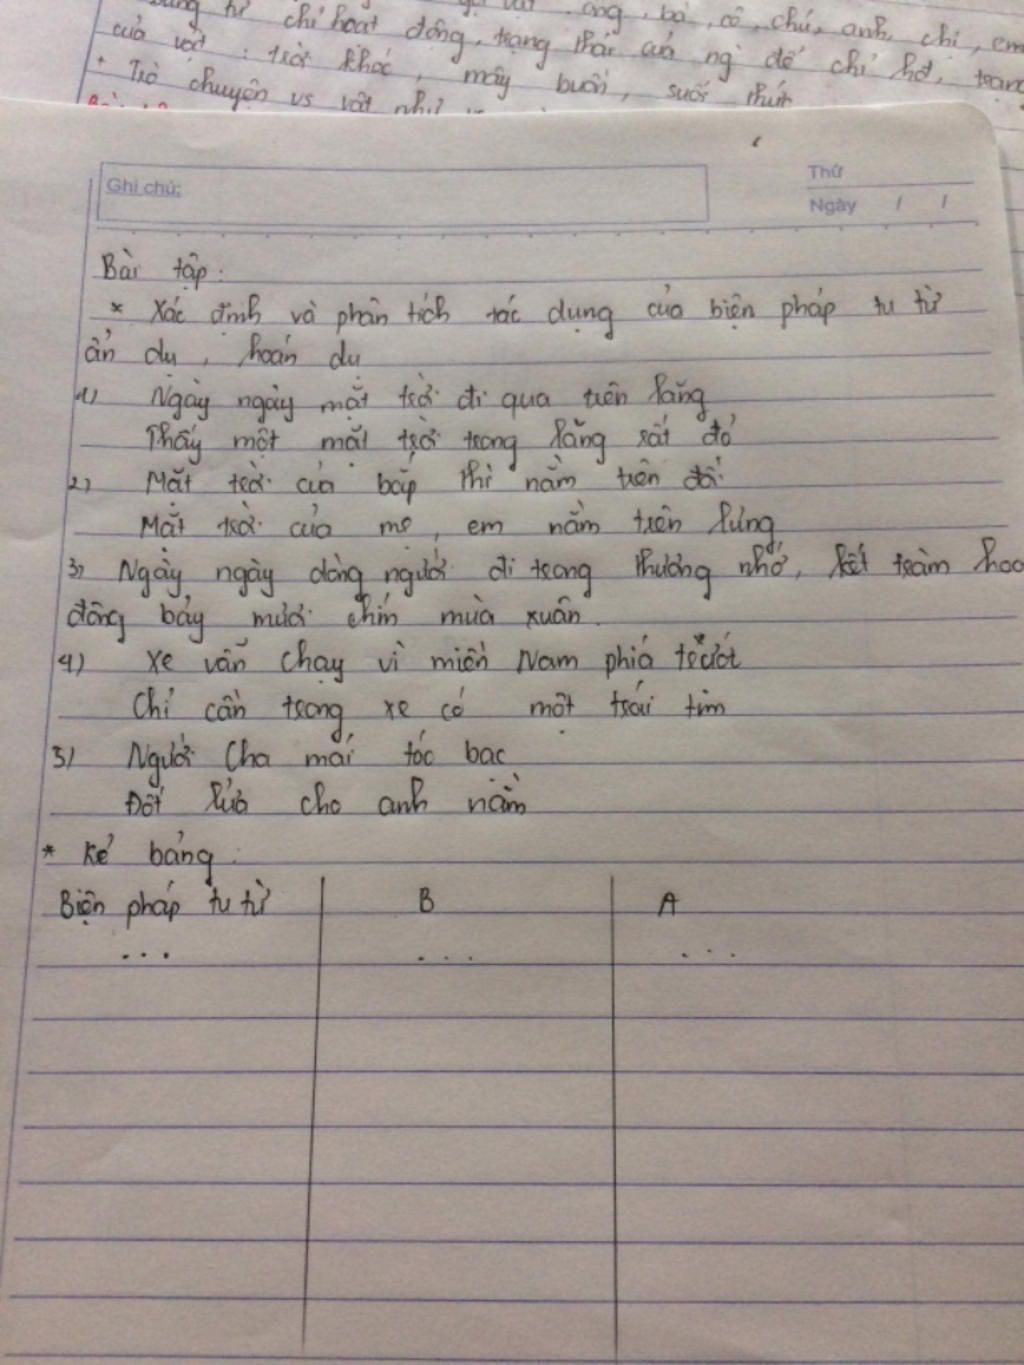 chỉ hoạt động, trạng thái của ng để chỉ hđ, trạng
của vật: trời khóc, mây buồn, suối thức
+ Trò chuyện vs vật như
Ghi chú:
Thứ
Ngày / /
Bài tập:
* Xác định và phân tích tác dụng của biện pháp tu từ
ẩn dụ, hoán dụ
1) Ngày ngày mặt trời đi qua trên lăng
Thấy một mặt trời trong lăng rất đỏ
2) Mặt trời của bắp thì nằm trên đồi
Mặt trời của mẹ, em nằm trên lưng
3) Ngày ngày dòng người đi trong thương nhớ, kết tràm hoa
dâng bảy mươi chín mùa xuân.
4) Xe vẫn chạy vì miền Nam phía trước
Chỉ cần trong xe có một trái tim
5) Người Cha mái tóc bạc
Đốt lửa cho anh nằm
* Kẻ bảng:
Biện pháp tu từ B A
... ... ...